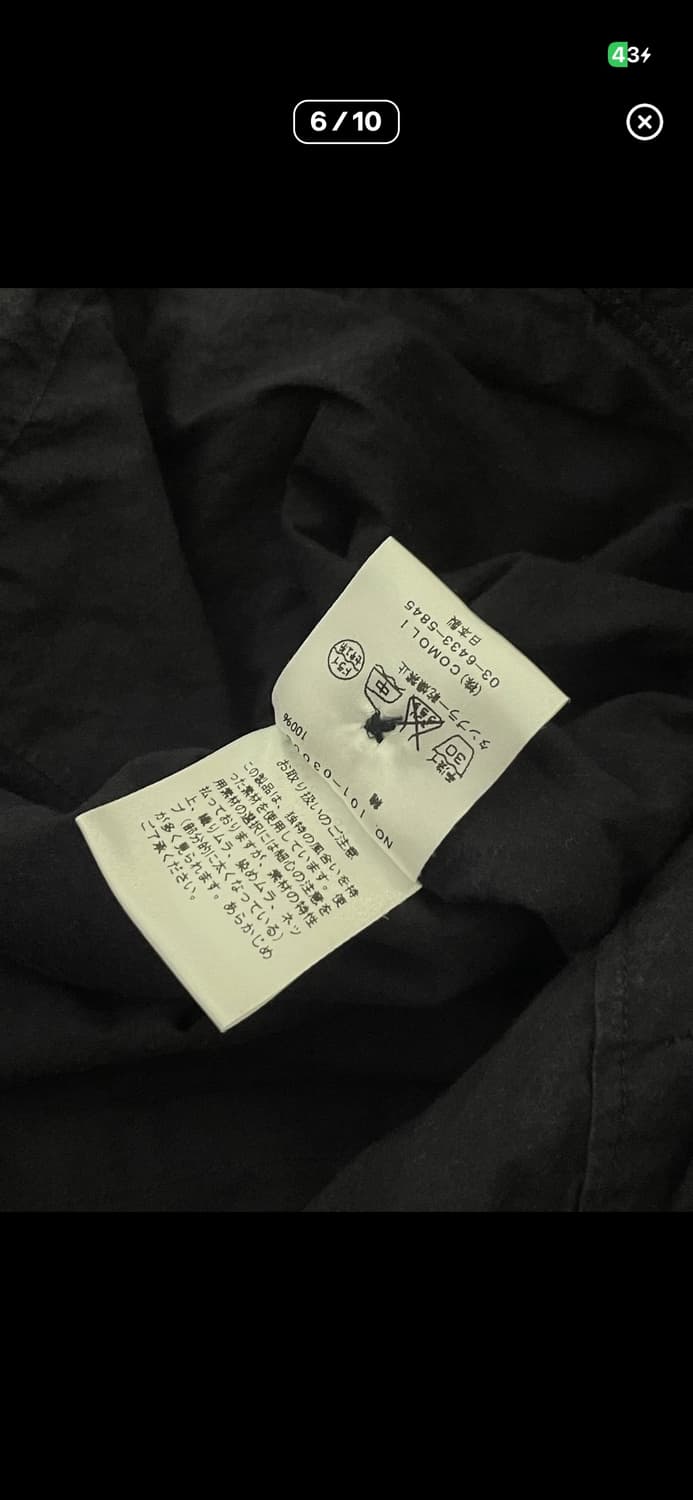 43
6/10
NO. 101-03
綿
100%
手洗イ
30
エンソサラシ
中
ドライ
セキユ系
タンブラー乾燥禁止
(株) COMOLI
03-6433-5845
日本製
お取り扱いのご注意
この製品は、独特の風合いを持
った素材を使用しています。使
用素材の選択には細心の注意を
払っておりますが、素材の特性
上、織りムラ、染めムラ、ネッ
プ（部分的に太くなっている）
が多く見られます。あらかじめ
ご了承ください。